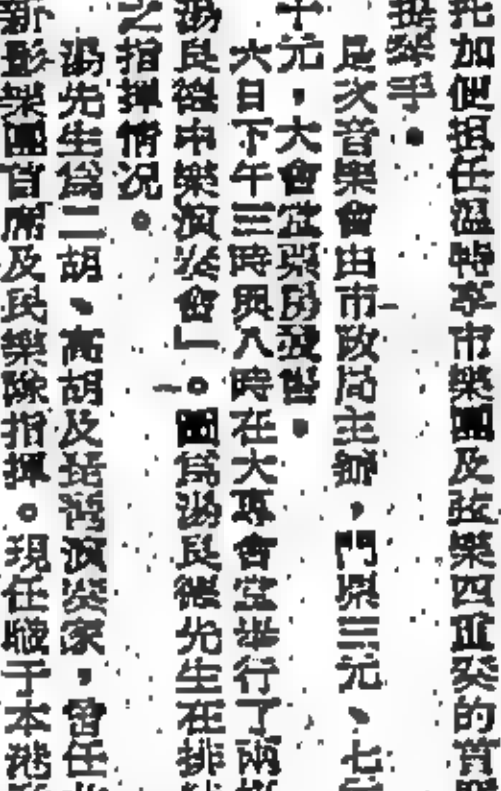 托加便担任溫特享市樂團及弦樂四重奏的首
提琴手。
是次音樂會由市政局主辦,門票三元、七
十元,大會堂票房發售。
六日下午三時與八時在大專會堂舉行了兩
湯良德中樂演奏會」。圖為湯良德先生在排
之指揮情況。
湯先生為二胡、高胡及琵琶演奏家,曾任
新影樂團首席及民樂隊指揮。現任職于本港